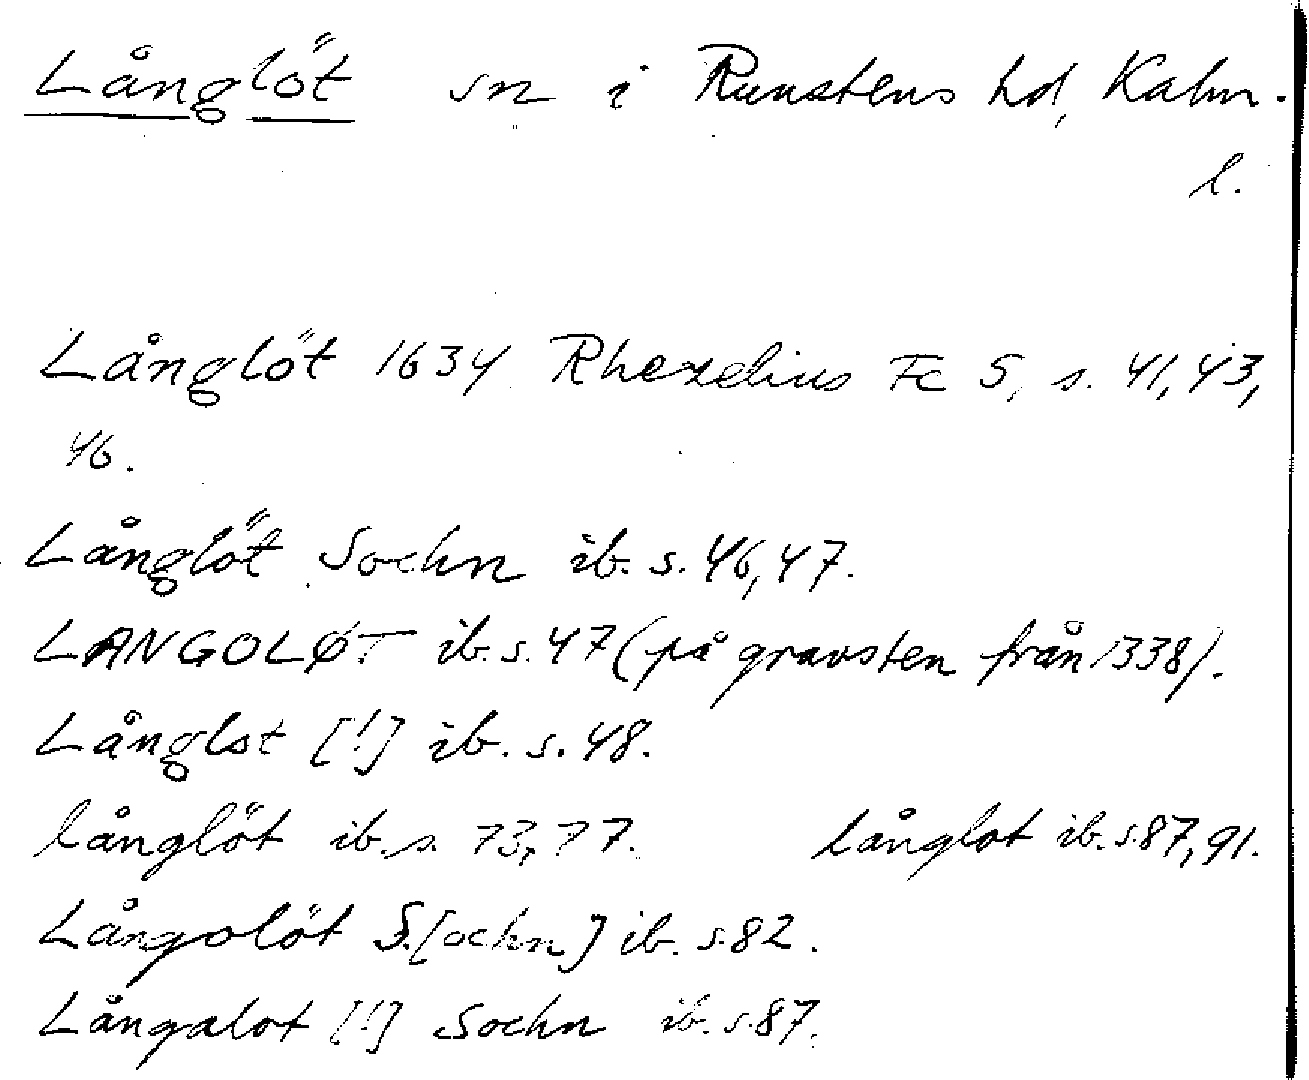 Långlöt sn i Runstens hd, Kalm.
l.
Långlöt 1634 Rhezelius Fc 5, s. 41, 43,
46.
Långlöt Sochn ib. s. 46, 47.
LANGOLØT ib. s. 47 (på gravsten från 1338).
Långlst [!] ib. s. 48.
långlöt ib. s. 73, 77. Långlot ib. s. 87, 91.
Långolöt S.[ochn] ib. s. 82.
Långalot [!] Sochn ib. s. 87.